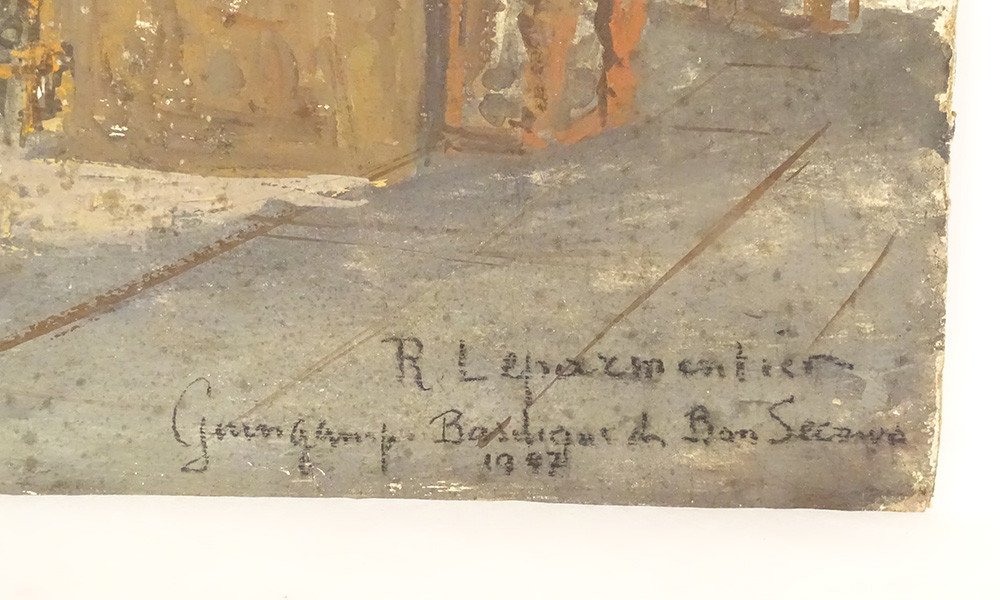 R. Leparmentier
Guingamp. Basilique de Bon Secours
1947